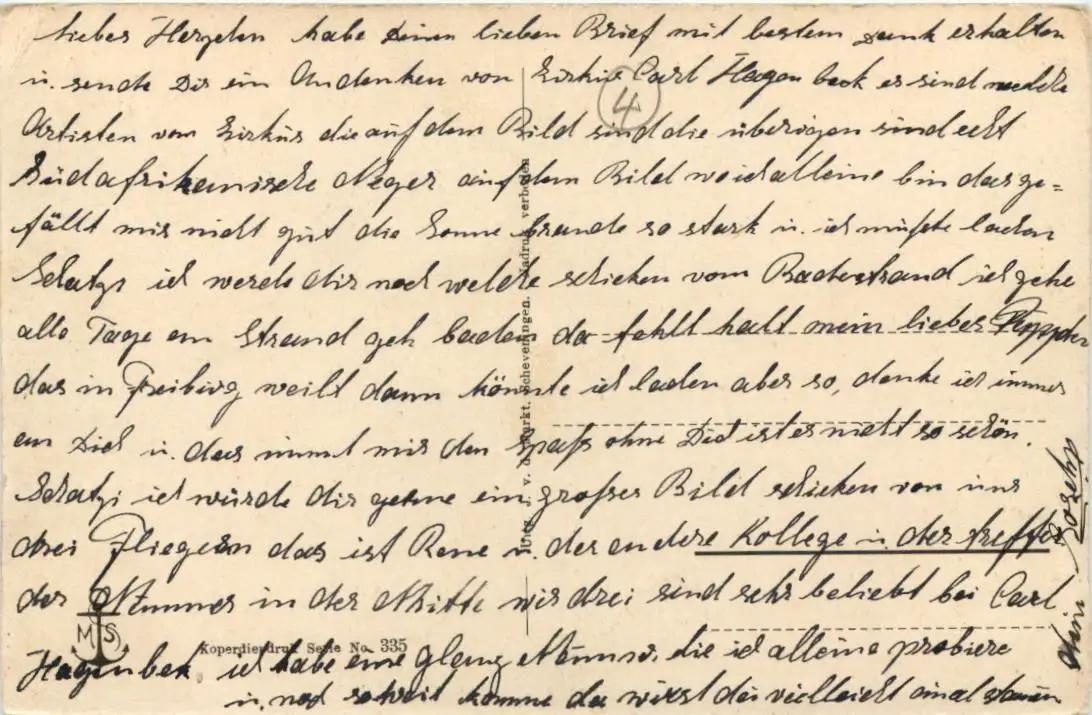 liebes Herzelen habe Deinen lieben Brief mit bestem Dank erhalten
u. sende Dir ein Andenken von Zirkus Carl Hagenbeck es sind welche
4
Artisten vom Zirkus die auf dem Bild sind die überigen sind echt
Südafrikanische Neger auf dem Bild wo ich alleine bin das ge=
fällt mir nicht gut die Sonne brande so stark u. ich mußte lachen
Schatzi ich werde dir noch welche schicken vom Badestrand ich gehe
alle Tage am Strand geh baden da fehlt halt mein liebes
das in Freiburg weilt dann könnte ich lachen aber so, denke ich immer
an Dich u. das nimmt mir den Spaß ohne Dich ist es nicht so schön.
Schatzi ich würde dir gerne ein großes Bild schicken von uns
drei Fliegern das ist Rene u. der andere Kollege u. der
der Nummer in der Mitte wir drei sind sehr beliebt bei Carl
Hagenbek ich habe eine Nummer, die ich alleine probiere
u. noch soweit komme da wirst du vielleicht einmal staunen
mein
Uitg. J. v. d. Scheveningen. Nadruk verboden
M S
Koperdiepdruk Serie No. 335